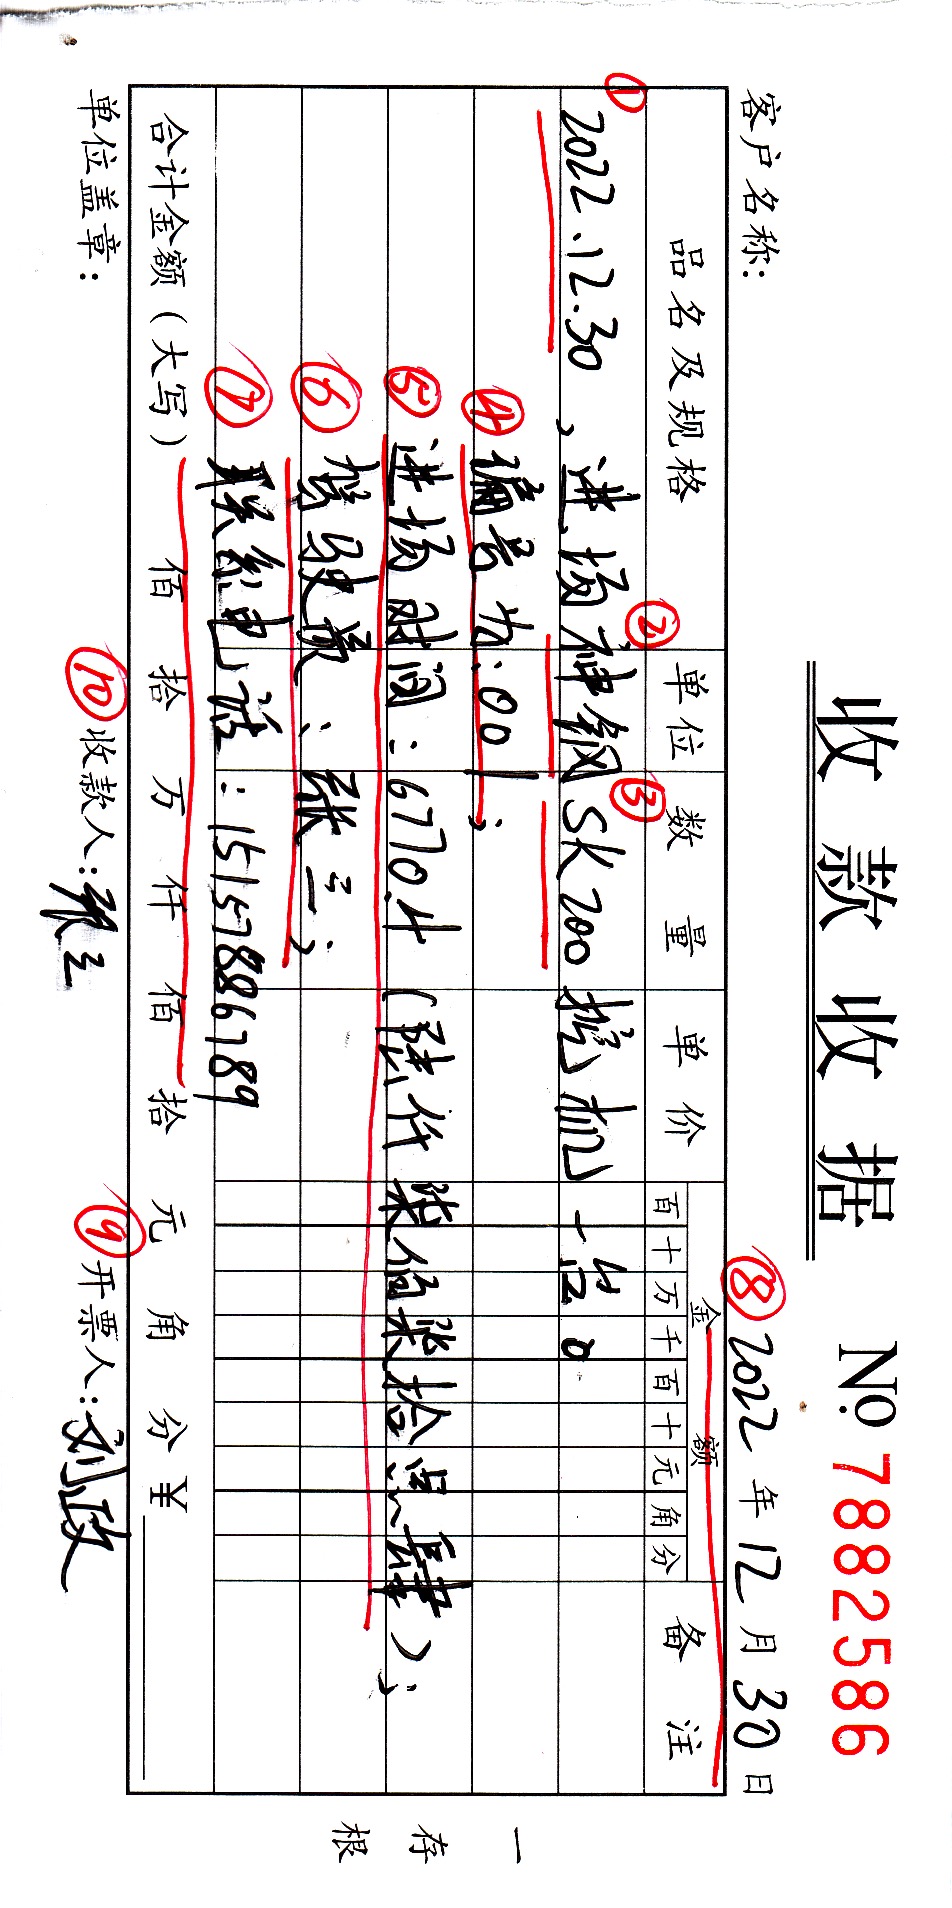 收款收据 № 7882586
客户名称: ⑧ 2022 年 12 月 30 日
品名及规格 单位 数量 单价 金额 备注
百 十 万 千 百 十 元 角 分
① ② ③
2022.12.30，进场神钢SK200挖机一台。
④ 编号为:001;
⑤ 进场时间:6770.4(陆仟柒佰柒拾点肆);
⑥ 驾驶员:张三;
⑦ 联系电话:15157886789
合计金额(大写) 佰 拾 万 仟 佰 拾 元 角 分 ¥
单位盖章: ⑩ 收款人:张三 ⑨ 开票人:刘政
一存根